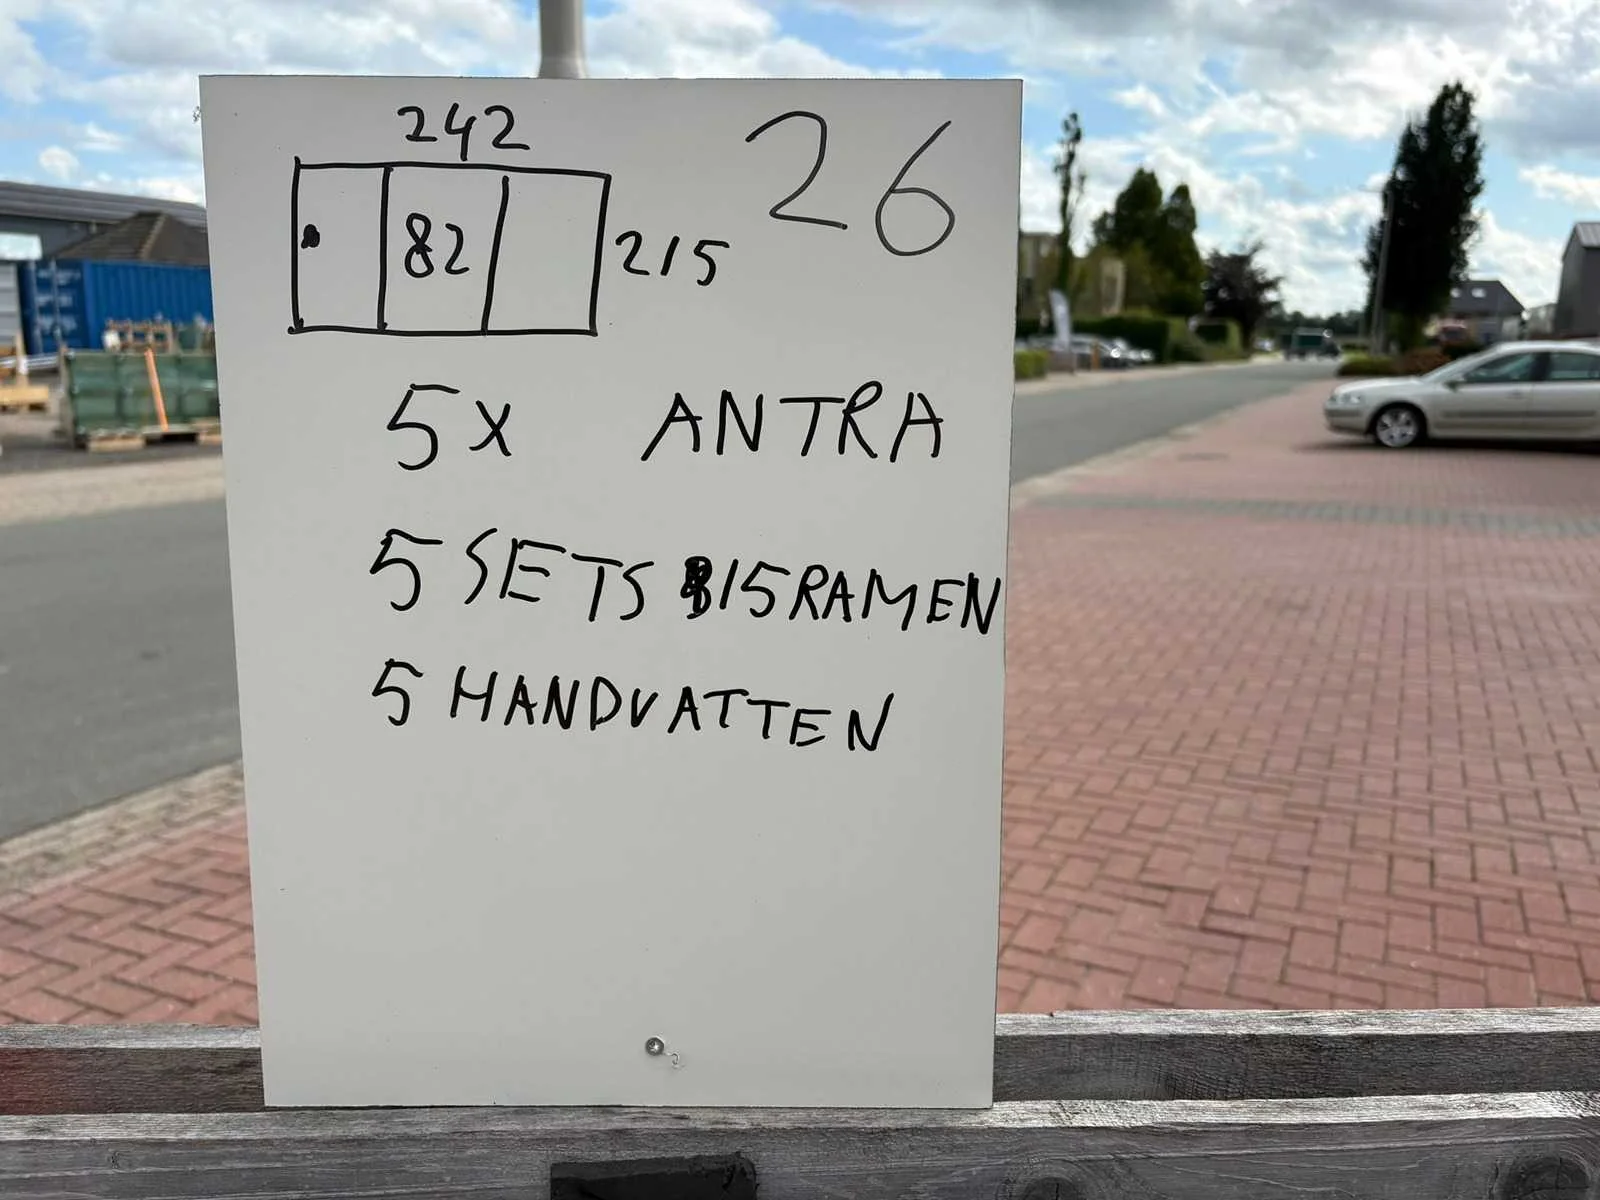 242
26
82
215
5X ANTRA
5 SETS 15 RAMEN
5 HANDVATTEN